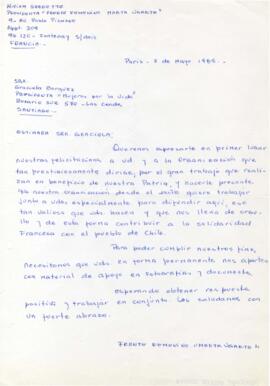 MIRIAM
PRESIDENTA "FRENTE FEMENINO MARTA UGARTE"
9 - AV. Pablo Picasso
Appt. 209
94.120 - Fontenay s/bois
FRANCIA -
Paris - 2 de Mayo 1985.-
SRA.
Graciela Borquez
PRESIDENTA "Mujeres por la Vida"
Rosario SUR 580 - Las Condes
SANTIAGO -
ESTIMADA SRA. GRACIELA:
Queremos expresarle en primer lugar
nuestras felicitaciones a ud. y a la Organización que
tan prestigiosamente dirige, por el gran trabajo que reali-
zan en beneficio de nuestra Patria, y hacerle presente
que nuestra organización desde el exilio quiere trabajar
junto a uds. especialmente para difundir aquí, eso
tan valioso que uds. hacen y que nos llena de orgu-
llo y de esta forma contribuir a la solidaridad
Francesa con el pueblo de Chile.
Para poder cumplir nuestros fines,
necesitamos que uds. en forma permanente nos aporten
con material de apoyo en fotografías y documentos.
Esperando obtener respuesta
positiva y trabajar en conjunto. Las saludamos con
un fuerte abrazo.
FRENTE FEMENINO "MARTA UGARTE"